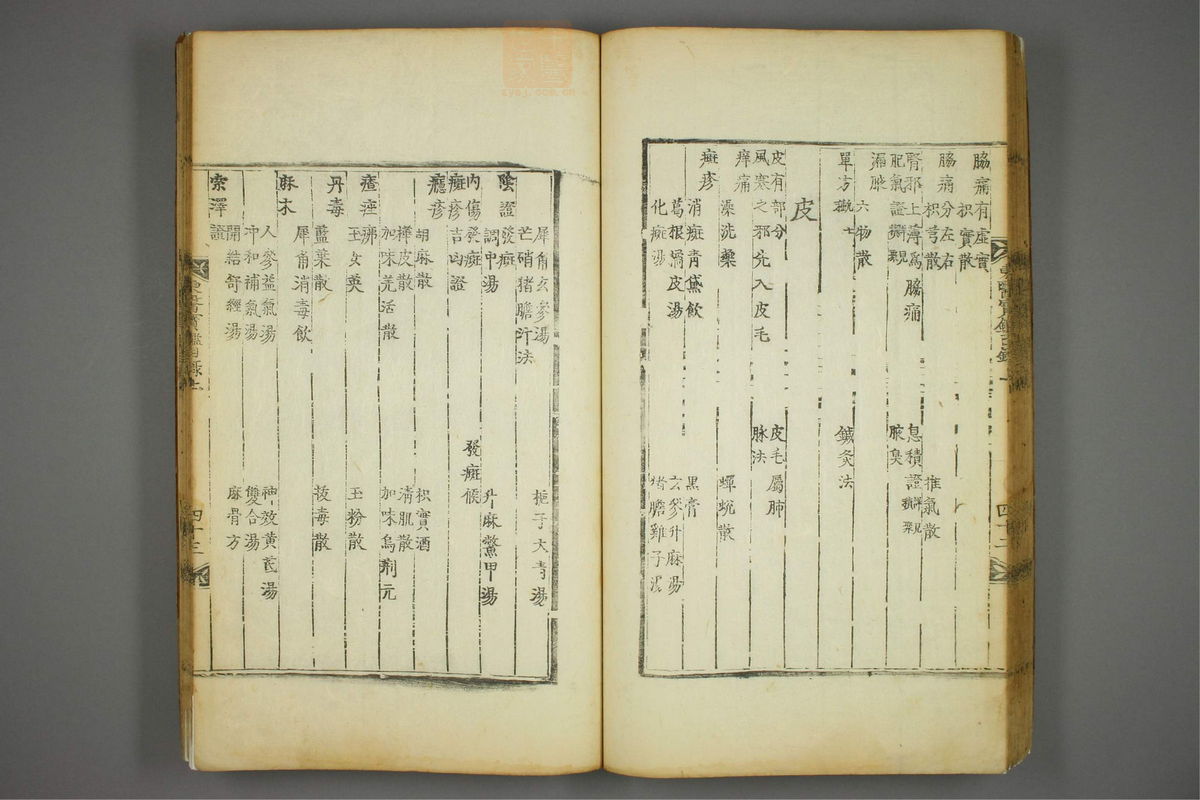 脇痛有虛實
枳實散
脇痛分左右
枳芎散
推氣散
腎邪上薄爲脇痛
息積證
肥氣證
腋臭
漏腋
六物散
單方
鍼灸法
皮
皮有部分
皮毛屬肺
風寒之邪先入皮毛
脉法
痒痛
澡洗藥
蟬蛻散
癍疹
消癍青黛飲
黑膏
葛根橘皮湯
玄參升麻湯
化癍湯
猪膽雞子湯
陰證發癍
犀角玄參湯
梔子大青湯
芒硝猪膽汁法
內傷發癍
調中湯
升麻鱉甲湯
發癍候
癍疹吉凶證
癮疹
胡麻散
枳實酒
樺皮散
淸肌散
加味羌活散
加味烏荊元
瘡痤疿
玉女英
玉粉散
丹毒
藍葉散
拔毒散
犀角消毒飲
麻木
人參益氣湯
神效黄芪湯
冲和補氣湯
雙合湯
索澤證
開結舒經湯
麻骨方
東醫寶鑑目錄上
四十二
四十三